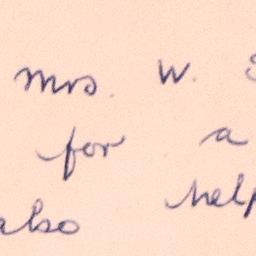 Mrs. W.
for a
also help